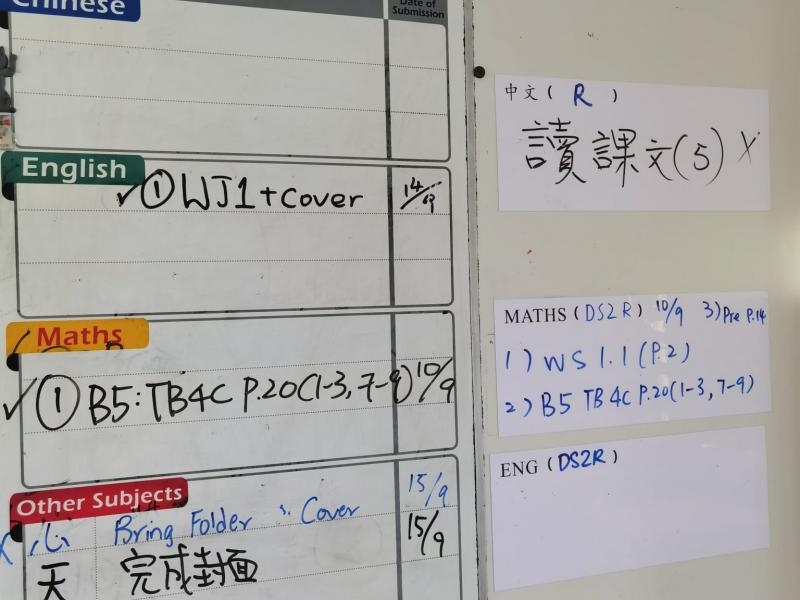 Chinese
Date of
Submission
English
✓ ① WJ1 + cover 14/9
Maths
✓ ① B5: TB4C P.20(1-3, 7-9) 10/9
Other Subjects
心 Bring Folder Cover 15/9
天 完成封面 15/9
中文 ( R )
讀課文(5) X
MATHS ( DS2R ) 10/9 3) Pre P.14
1) WS 1.1 (P.2)
2) B5 TB 4C P.20(1-3, 7-9)
ENG ( DS2R )